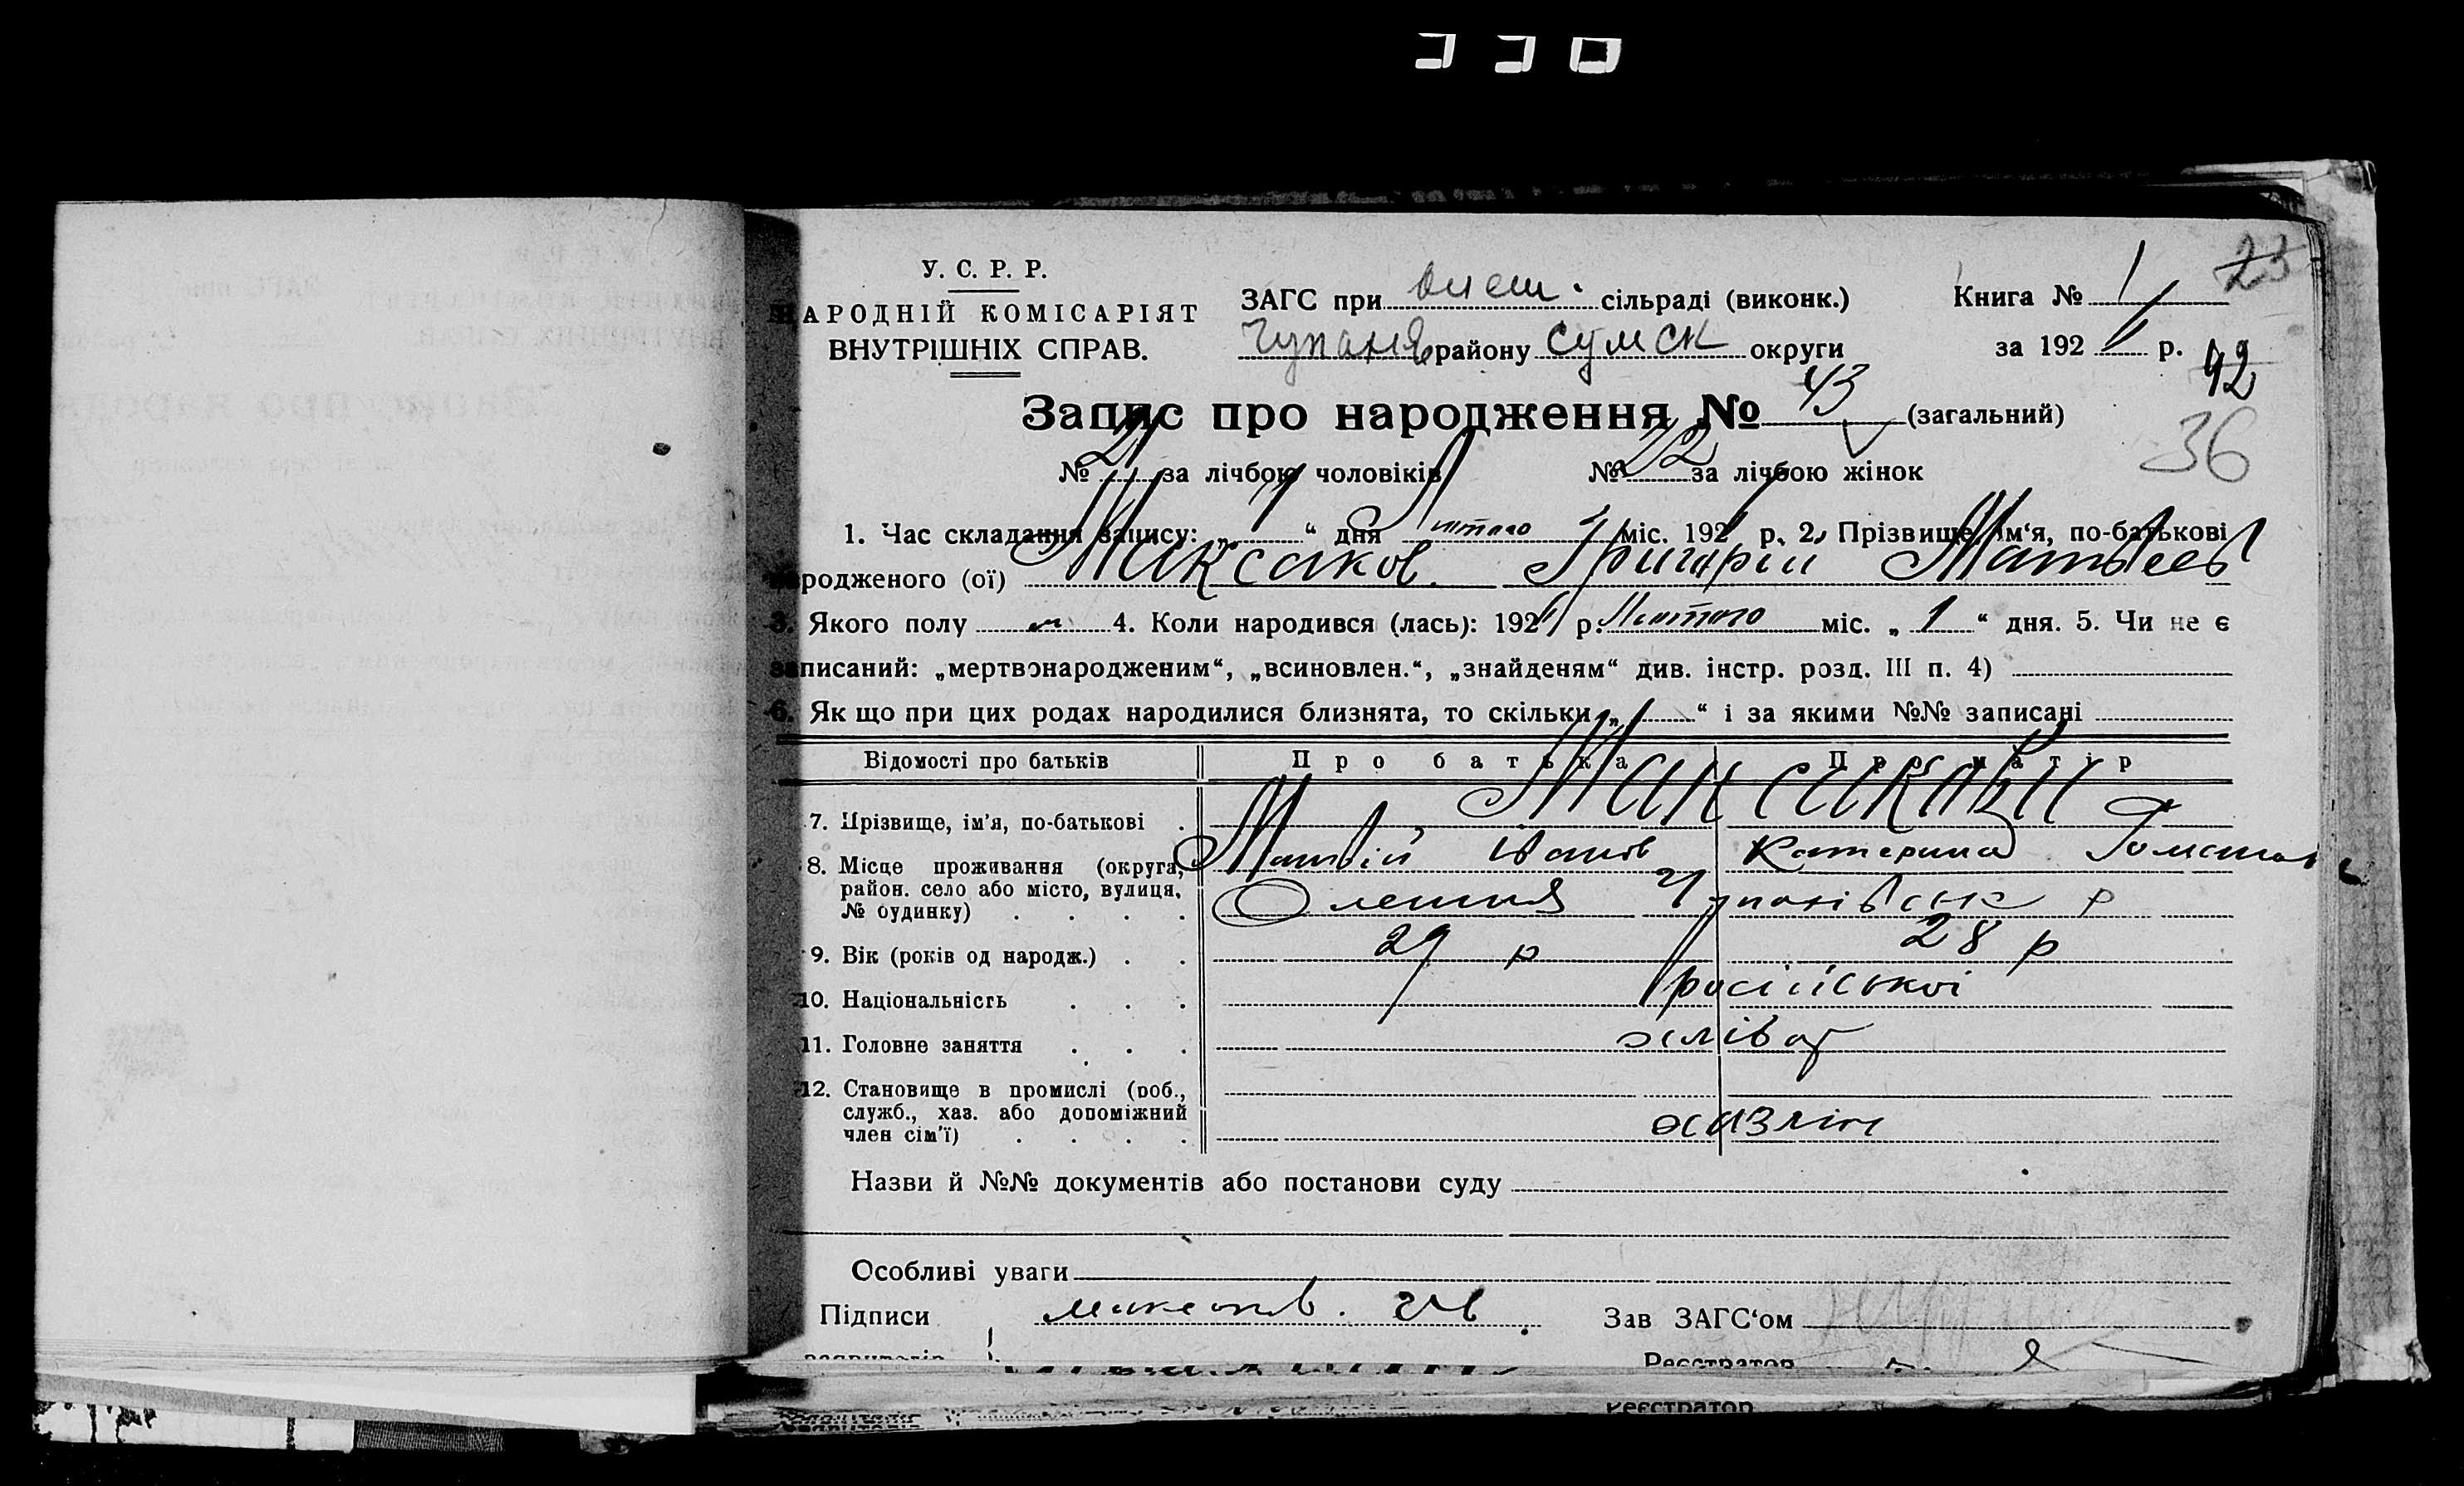 У. С. Р. Р.
НАРОДНІЙ КОМІСАРІЯТ
ВНУТРІШНІХ СПРАВ.
ЗАГС при олеш. сільраді (виконк.)
Чупахів району сумск округи
Книга № 1
за 192 р.
23
42
36
Запис про народження № 43 (загальний)
№ 21 за лічбою чоловіків № 22 за лічбою жінок
1. Час складання запису: „ 1 “ дня лютого міс. 192 р. 2. Прізвище, ім‘я, по-батькові
народженого (ої) Максаков Григорій Матвеев
3. Якого полу м 4. Коли народився (лась): 192 р. Лютого міс. „ 1 “ дня. 5. Чи не є
записаний: „мертвонародженим“, „всиновлен.“, „знайденям“ див. інстр. розд. III п. 4)
6. Як що при цих родах народилися близнята, то скільки „ “ і за якими №№ записані
Відомості про батьків Про батька Про матір
7. Прізвище, ім‘я, по-батькові Максакови
Матвій Іванів Катерина
8. Місце проживання (округа, район. село або місто, вулиця, № будинку) Олешня Чупахівськ р
9. Вік (років од народж.) 29 р 28 р
10. Національність російської
11. Головне заняття хлібор
12. Становище в промислі (роб., служб., хаз. або допоміжний член сім‘ї) хазяїн
Назви й №№ документів або постанови суду
Особливі уваги
Підписи Максаков.
Зав ЗАГС‘ом
заявителів
Реєстратор
Реєстратор